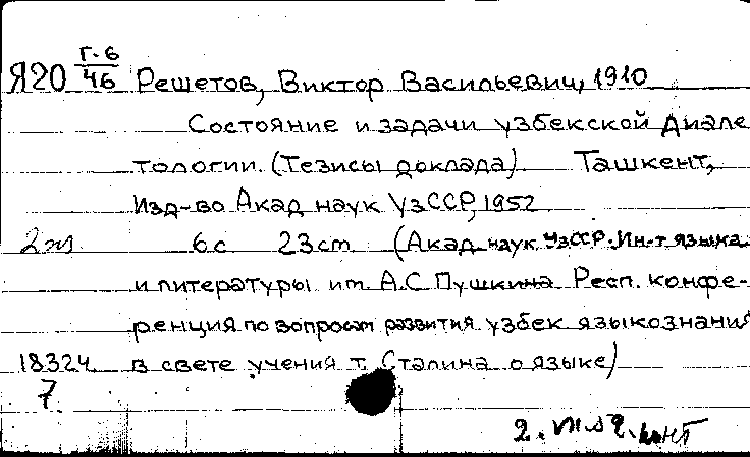 Г-6
Я20 46 Решетов, Виктор Васильевич, 1910
Состояние и задачи узбекской диале
тологии. (Тезисы доклада) Ташкент,
Изд-во Акад наук УзССР, 1952
2 6 с 23 cm (Акад наук УзССР. Ин-т языка
и литературы им. А.С Пушкина Респ. конфе-
ренция по вопросам развития узбек языкознания
18324 в свете учения т. Сталина о языке)
7.
2.